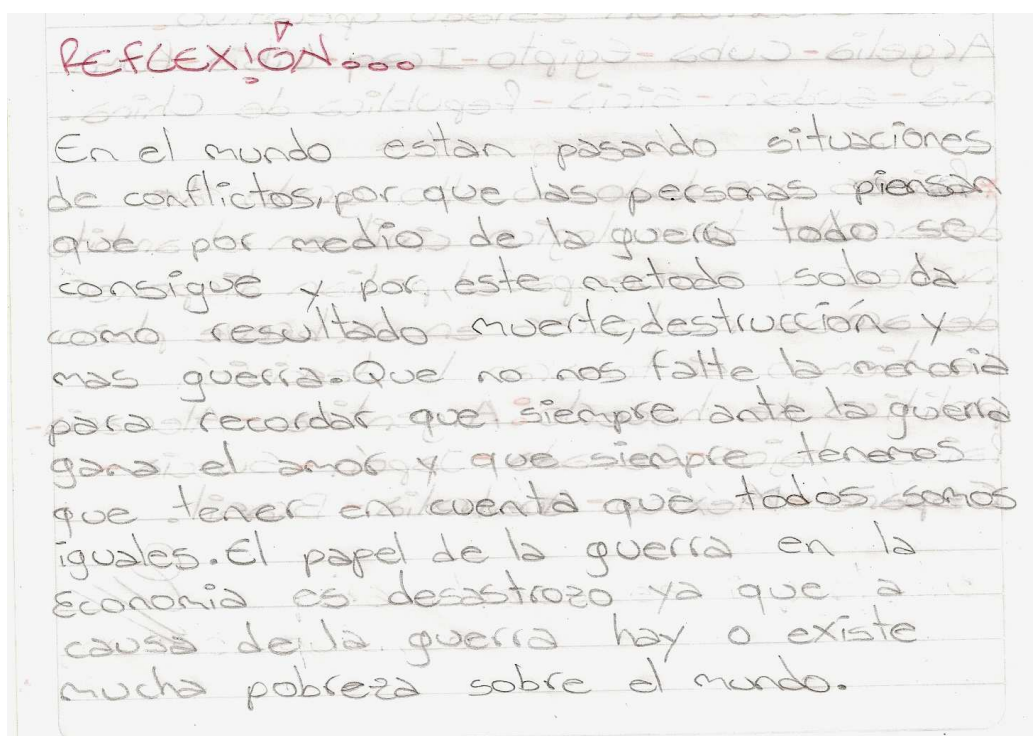 REFLEXIÓN...
En el mundo estan pasando situaciones
de conflictos, por que las personas piensan
que por medio de la guerra todo se
consigue y por este metodo solo da
como resultado muerte, destrucción y
mas guerra. Que no nos falte la memoria
para recordar que siempre ante la guerra
gana el amor y que siempre tenemos
que tener en cuenta que todos somos
iguales. El papel de la guerra en la
Economia es desastrozo ya que a
causa de la guerra hay o existe
mucha pobreza sobre el mundo.